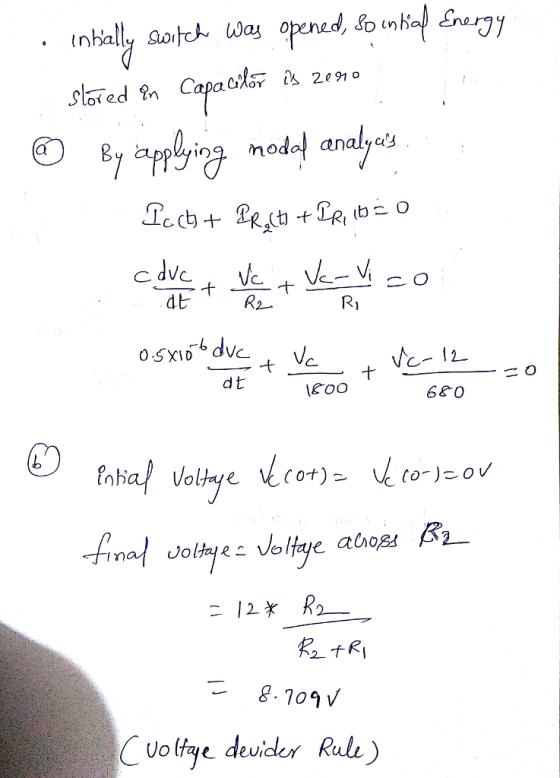 . intially switch was opened, so intial Energy
stored in Capacitor is zero
(a) By applying nodal analysis.
Ic(t) + IR₂(t) + IR₁(t) = 0
C dvc/dt + Vc/R2 + Vc-Vi/R1 = 0
0.5×10⁻⁶ dvc/dt + Vc/1800 + Vc-12/680 = 0
(b) intial Voltage Vc(0+) = Vc(0-)=0V
final voltage = Voltage across R2
= 12 * R2/R2+R1
= 8.709V
(Voltage devider Rule)